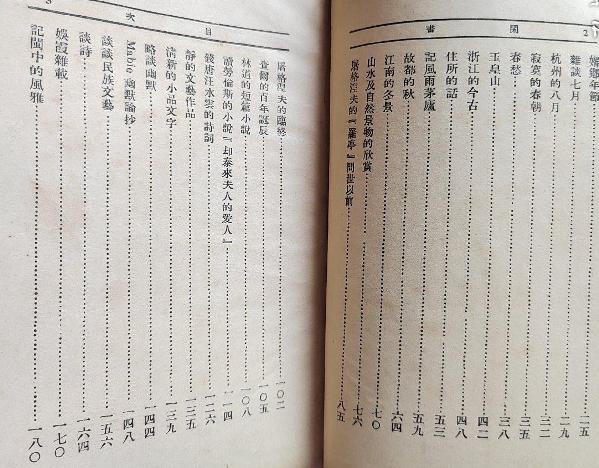 閒書 2
婿鄉年節 二五
雜談七月 二九
杭州的八月 三二
寂寞的春朝 三五
春愁 三八
玉皇山 四二
浙江的今古 四八
住所的話 五三
記風雨茅廬 五九
故都的秋 六四
江南的冬景 七〇
山水及自然景物的欣賞 七六
屠格涅夫的『羅亭』問世以前 八五
目次 3
屠格涅夫的臨終 一〇二
查爾的百年誕辰 一〇五
林道的短篇小說 一〇八
讀勞倫斯的小說『却泰來夫人的愛人』 一一四
錢唐汪水雲的詩詞 一二六
靜的文藝作品 一三五
清新的小品文字 一三九
略談幽默 一四四
Mabie 幽默論抄 一四八
談談民族文藝 一五六
談詩 一六四
娛霞雜載 一七〇
記閩中的風雅 一八〇